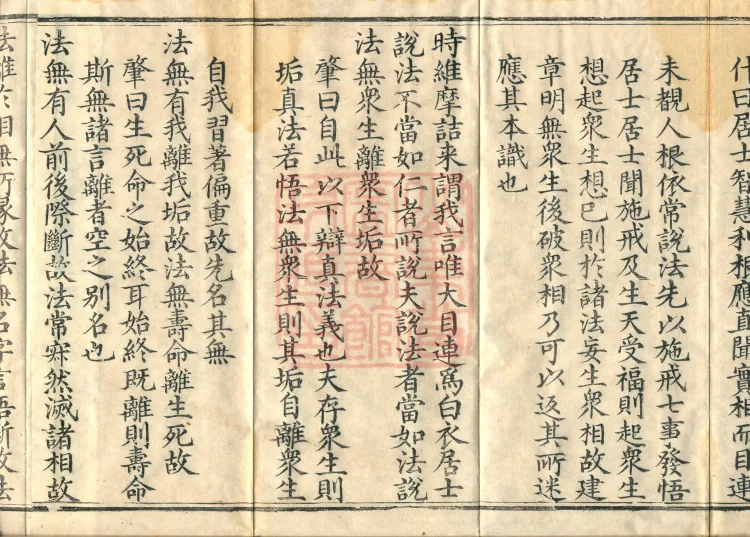 什曰居士智慧利根應直聞實相而目連
未覩人根依常說法先以施戒七事發悟
居士居士聞施戒及生天受福則起衆生
想起衆生想已則於諸法妄生衆相故建
章明無衆生後破衆相乃可以返其所迷
應其本識也
時維摩詰来謂我言唯大目連爲白衣居士
說法不當如仁者所說夫說法者當如法說
法無衆生離衆生垢故
肇曰自此以下辯真法義也夫存衆生則
垢真法若悟法無衆生則其垢自離衆生
自我習著偏重故先名其無
法無有我離我垢故法無壽命離生死故
肇曰生死命之始終耳始終既離則壽命
斯無諸言離者空之別名也
法無有人前後際斷故法常寂然滅諸相故
法離於相無所緣故法無名字言語斷故法